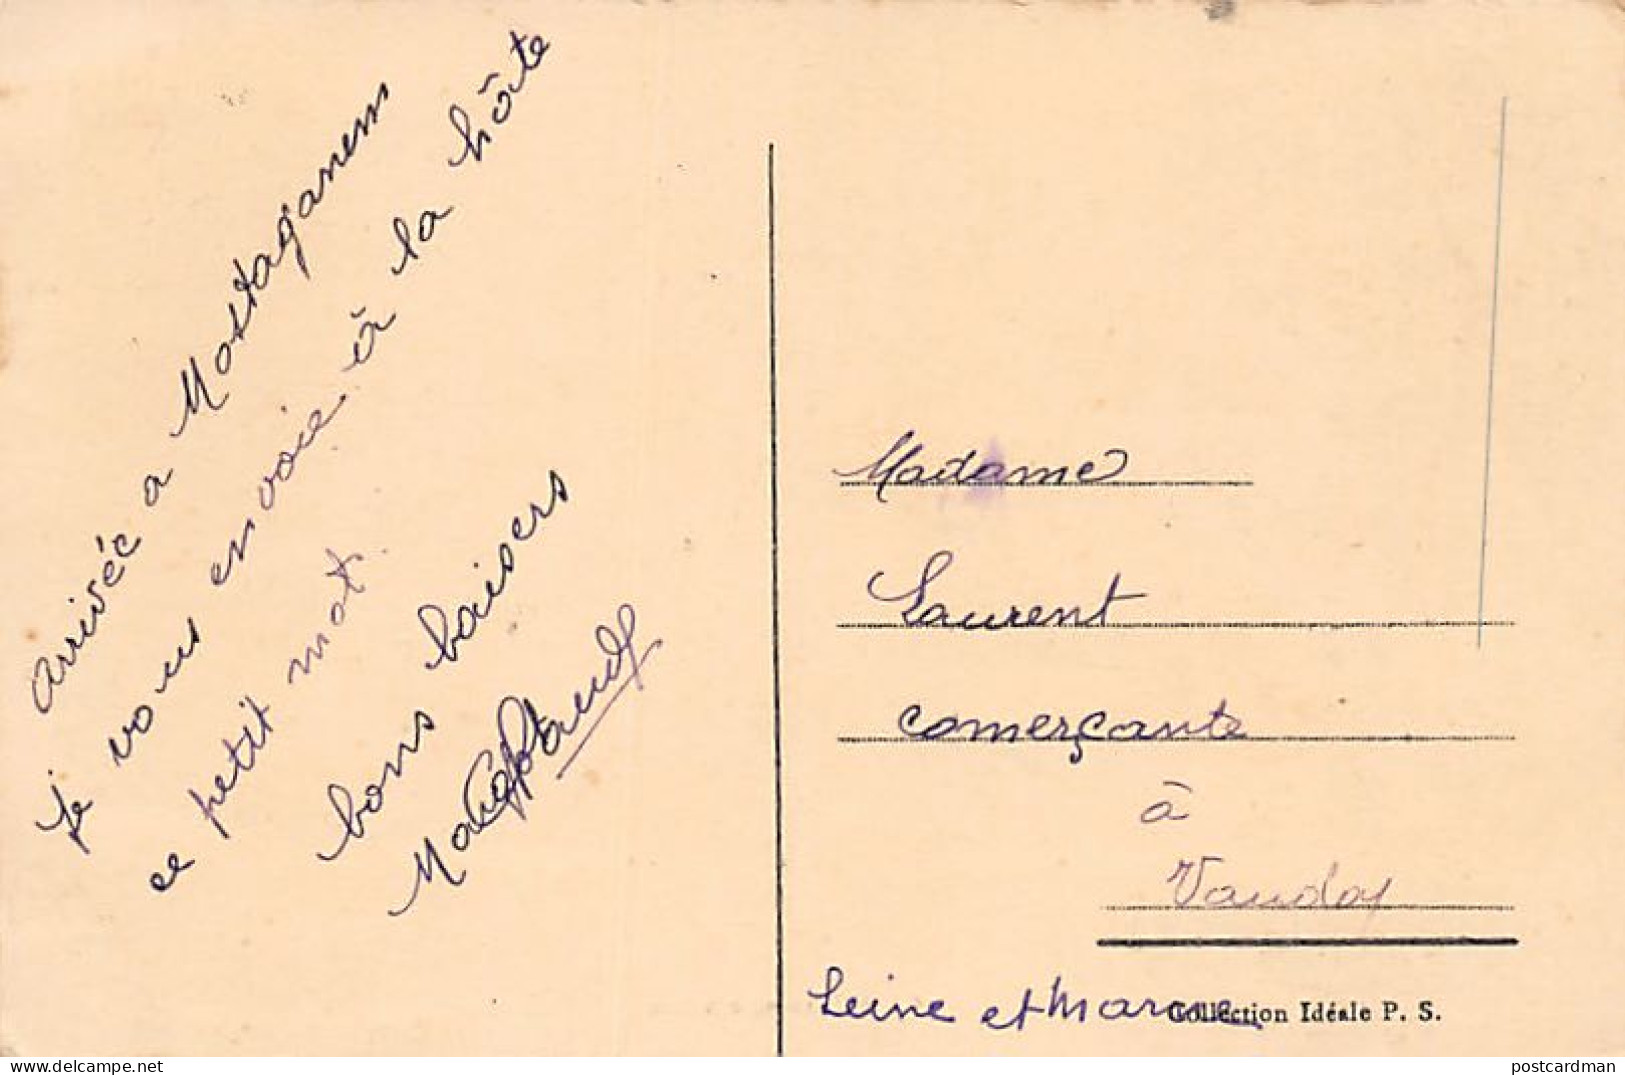 arrivée a Mostaganem
je vous en voie à la hôte
ce petit mot.
bons baisers
Madame
Laurent
comerçante
à
Vaudoy
Seine et Marne
Collection Idéale P. S.
postcardman